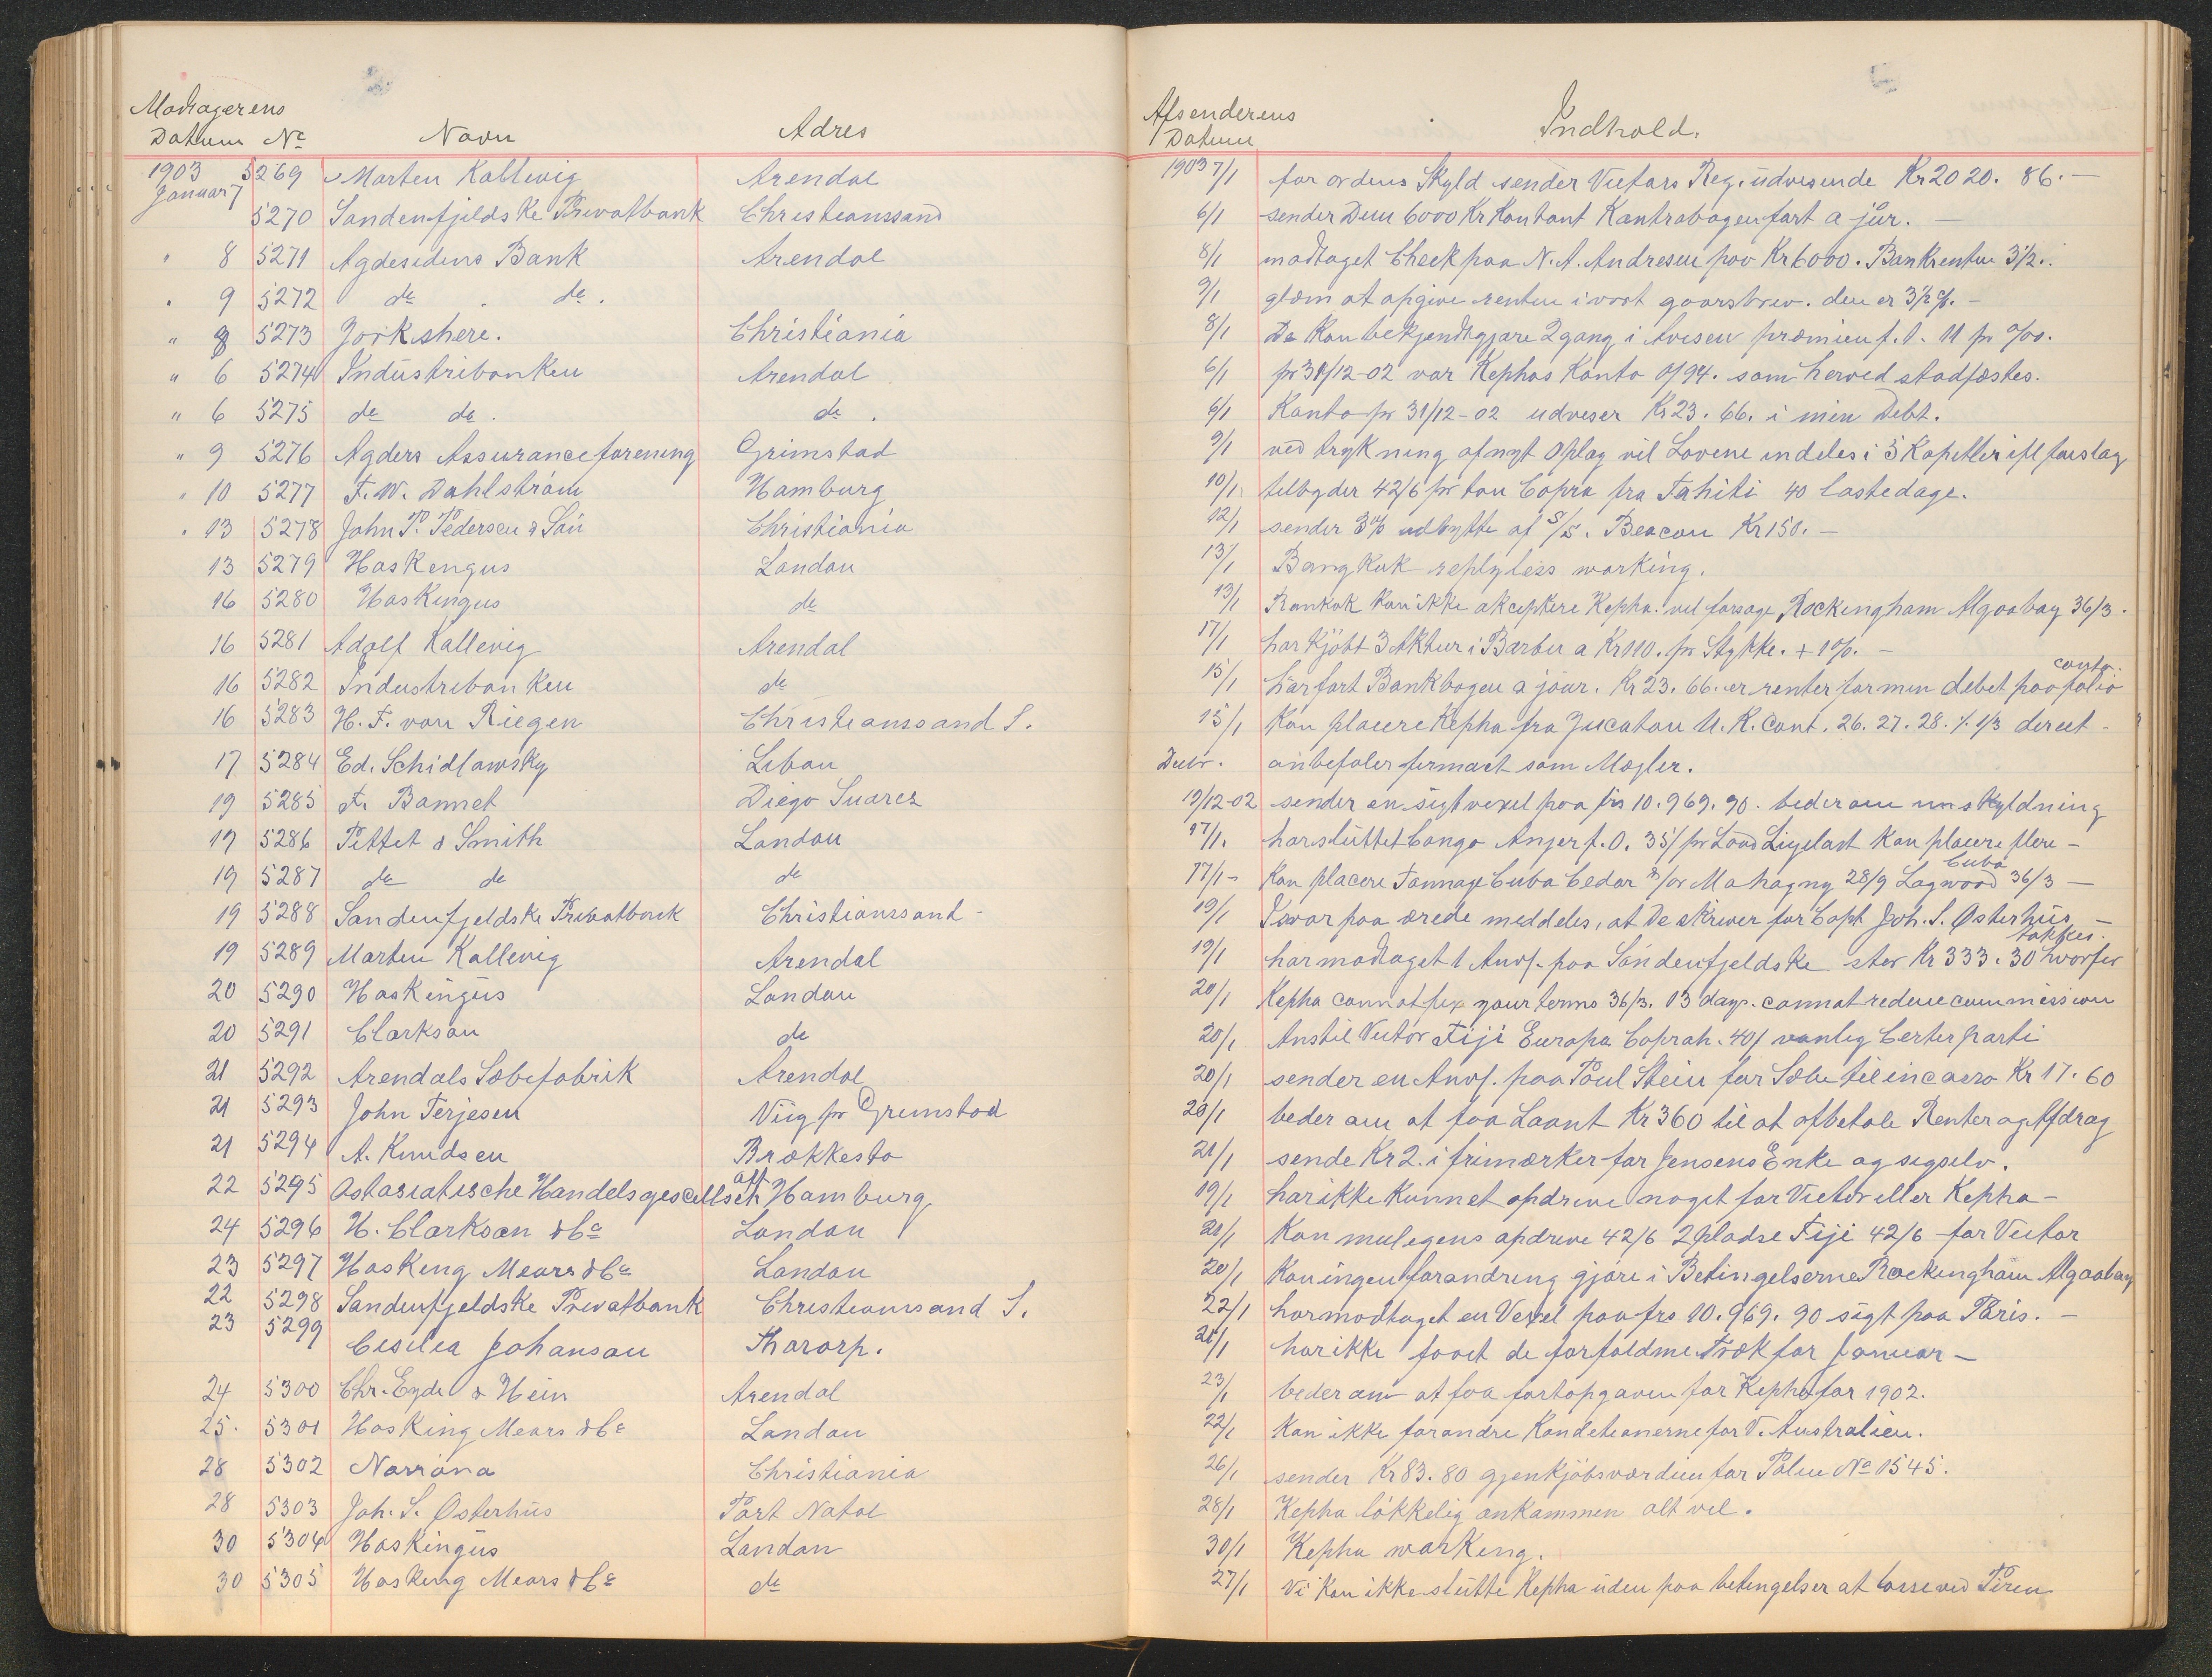 Modtagerens
Datum No Navn Adres
1903 Januar 7 5269 Morten Kallevig Arendal
5270 Søndenfjeldske Privatbank Christianssand
" 8 5271 Agdesidens Bank Arendal
" 9 5272 do do.
" 8 5273 Yorkshere. Christiania
" 6 5274 Industribanken Arendal
" 6 5275 do do. do.
" 9 5276 Agders Assuranceforening Grimstad
" 10 5277 F. W. Dahlstrøm Hamburg
" 13 5278 John P. Pedersen & Søn Christiania
13 5279 Hoskengus London
16 5280 Hoskingus do
16 5281 Adolf Kallevig Arendal
16 5282 Industribanken do
16 5283 H. F. von Riegen Christianssand S.
17 5284 Ed. Schidlawsky Libau
19 5285 Fr Bonnet Diego Suarez
19 5286 Pittet & Smith London
19 5287 do do do
19 5288 Søndenfjeldske Privatbank Christianssand -
19 5289 Morten Kallevig Arendal
20 5290 Hoskingus London
20 5291 Clarkson do
21 5292 Arendals Sæbefabrik Arendal
21 5293 John Terjesen Viig pr Grimstad
21 5294 A. Knudsen Brækkestø
22 5295 Ostasiatische Handelsgesellschaft Hamburg
24 5296 H. Clarkson & Co London
23 5297 Hosking Mears & Co London
22 5298 Søndenfjeldske Privatbank Christianssand S.
23 5299 Cesilia Johanson Thorarp.
24 5300 Chr. Eyde & Hein Arendal
25. 5301 Hosking Mears & Co London
28 5302 Norrøna Christiania
28 5303 Joh. S. Østerhus Port Natal
30 5304 Hoskingus London
30 5305 Hosking Mears & Co do
Afsenderens
Datum Indhold.
1903 7/1 for ordens Skyld sender Victors Reg. udvisende Kr 2020. 86. -
6/1 sender Dem 6000 Kr Kontant Kontrabogen ført a jür. -
8/1 modtaget Check paa N. A. Andresen paa Kr 6000. Bankrenten 3 1/2..
9/1 glem at opgive renten i vort gaarsbrev. den er 3 1/2 %. -
8/1 De kan bekjendtgjøre 2 gang i Avisen præmien f. 1. 11 pr o/oo.
6/1 pr 31/12-02 var Kephas Konto 0/94. som herved stadfæstes.
6/1 Konto pr 31/12-02 udviser Kr 23. 66. i min Debt.
9/1 ved trykning af nyt Oplag vil Lovene inddeles i 5 Kapitler ifl forslag
10/1 tilbyder 42/6 pr ton Copra fra Tahiti 40 lastedage.
12/1 sender 3% udbytte af S/S. Beacon Kr 150. -
13/1 Bangkok replyless working.
13/1 Bankok kan ikke akceptere Kepha. vil forsøge Rockingham Algoabay 36/3.
17/1 har Kjöbt 3 Aktier i Barbu a Kr 110. pr Stykke. + 1%. -
15/1 har ført Bankbogen a jour. Kr 23. 66. er renter for min debet paa folio conto.
15/1 Kan placere Kepha fra Yucatan U. K. Cont. 26. 27. 28. 1/3 direct -
Debr. anbefaler firmaet som Mægler.
19/12-02 sender en sigtvexel paa frs 10.969. 90. beder om undskyldning
17/1. har sluttet Congo Anjer f. O. 35/ pr Load Ligelast kan placere flere -
17/1 - Kan placere Tonnage Cuba Cedar &/or Mahogny 28/9 Logwood Cuba 36/3 -
19/1 I svar paa ærede meddeles, at De skriver for Capt Joh. S. Østerhus -
19/1 har modtaget 1 Anv. paa Søndenfjeldske stor Kr 333. 30 hvorfor takkes.
20/1 Kepha cannot fix your terms 36/3. 13 days. cannot reduce commission
20/1 Anstil Victor Fiji Europa Coprah. 40/ vanlig Certerparti
20/1 sender en Anv. paa Poul Stein for Sæbe til incasso Kr 17. 60
20/1 beder om at faa Laant Kr 360 til at afbetale Renter og Afdrag
21/1 sende Kr 2. i frimærker for Jensens Enke og sigselv.
19/1 har ikke kunnet opdrive noget for Victor eller Kepha -
21/1 Kan muligens opdrive 42/6 2 pladse Fiji 42/6 for Victor
20/1 Kan ingen forandring gjøre i Betingelserne Rockingham Algoabay
22/1 har modtaget en Vexel paa frs 10. 969. 90 sigt paa Paris. -
21/1 har ikke faaet de forfaldne Træk for Januar -
23/1 beder om at faa fartopgaven for Kepha for 1902.
22/1 Kan ikke forandre Konditionerne for V. Australien.
26/1 sender Kr 83. 80 gjenkjöbsværdien for Polise No 1545.
28/1 Kepha lökkelig ankommen alt vel.
30/1 Kepha working.
27/1 Vi kan ikke slutte Kepha uden paa betingelser at losse ved Piren